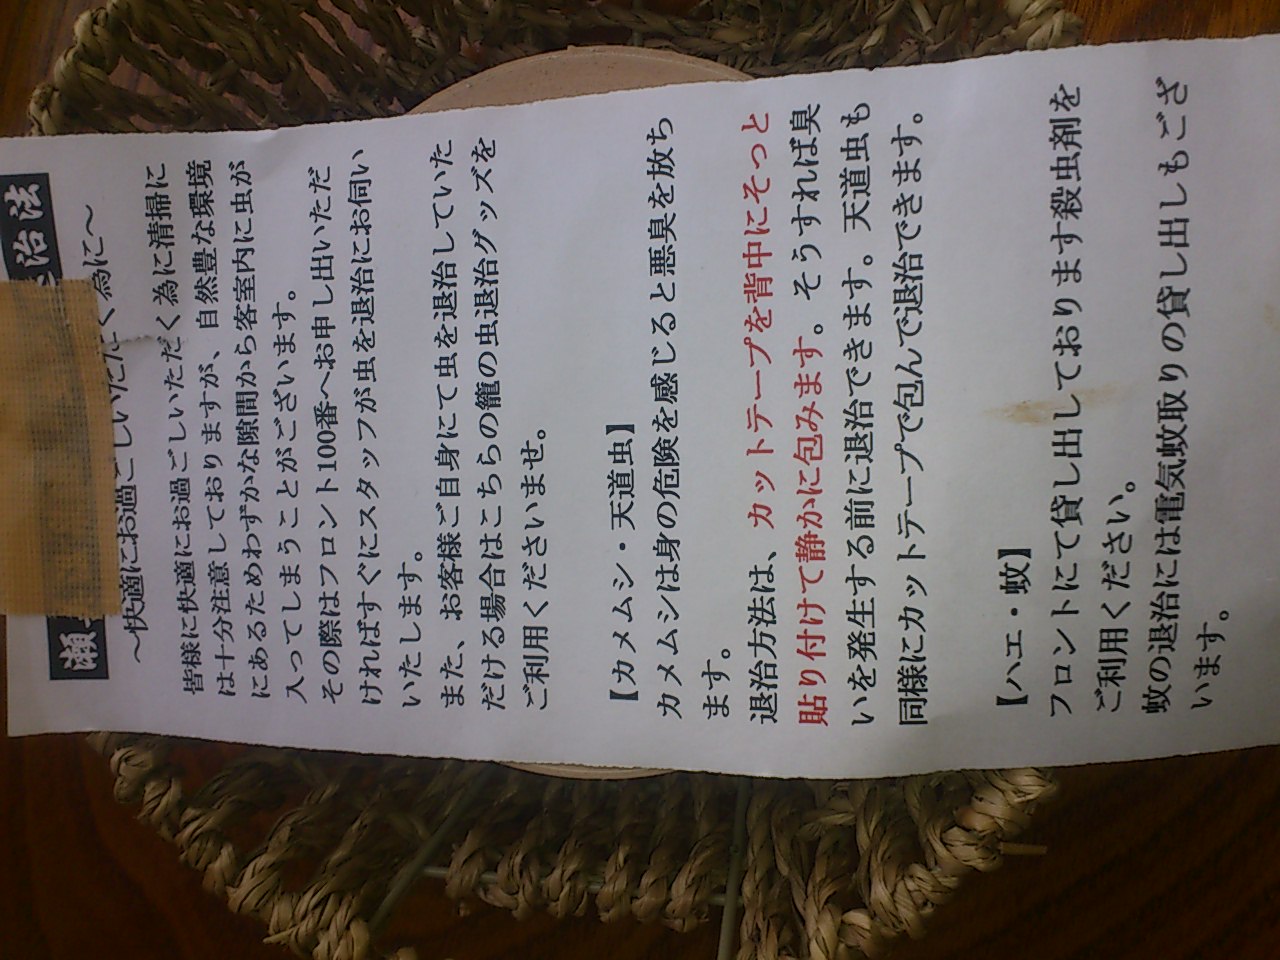 瀬 退治法
～快適にお過ごしいただく為に～
皆様に快適にお過ごしいただく為に清掃に
は十分注意しておりますが、自然豊な環境
にあるためわずかな隙間から客室内に虫が
入ってしまうことがございます。
その際はフロント100番へお申し出いただ
ければすぐにスタッフが虫を退治にお伺い
いたします。
また、お客様ご自身にて虫を退治していた
だける場合はこちらの籠の虫退治グッズを
ご利用くださいませ。
【カメムシ・天道虫】
カメムシは身の危険を感じると悪臭を放ち
ます。
退治方法は、カットテープを背中にそっと
貼り付けて静かに包みます。そうすれば臭
いを発生する前に退治できます。天道虫も
同様にカットテープで包んで退治できます。
【ハエ・蚊】
フロントにて貸し出しております殺虫剤を
ご利用ください。
蚊の退治には電気蚊取りの貸し出しもござ
います。